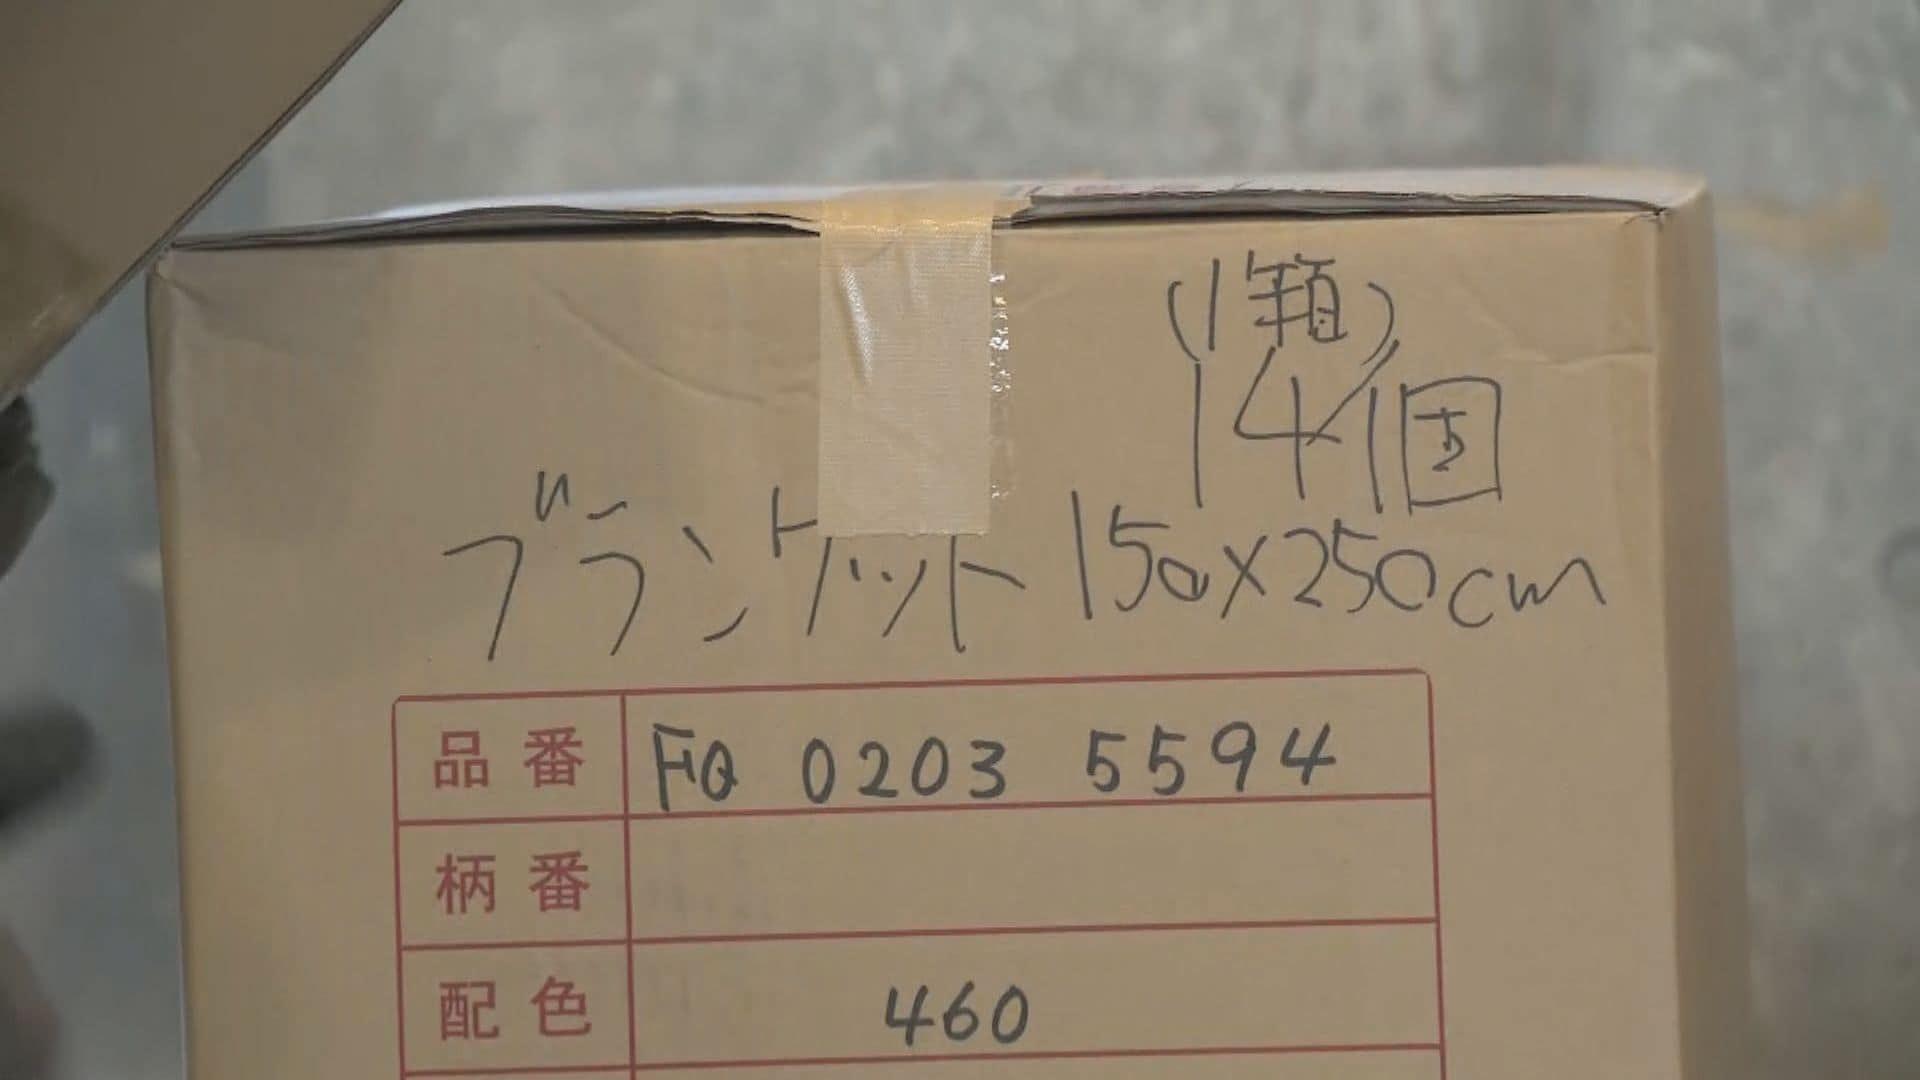 (1箱)
14個
ブランケット 150×250cm
品番 FQ 0203 5594
柄番
配色 460